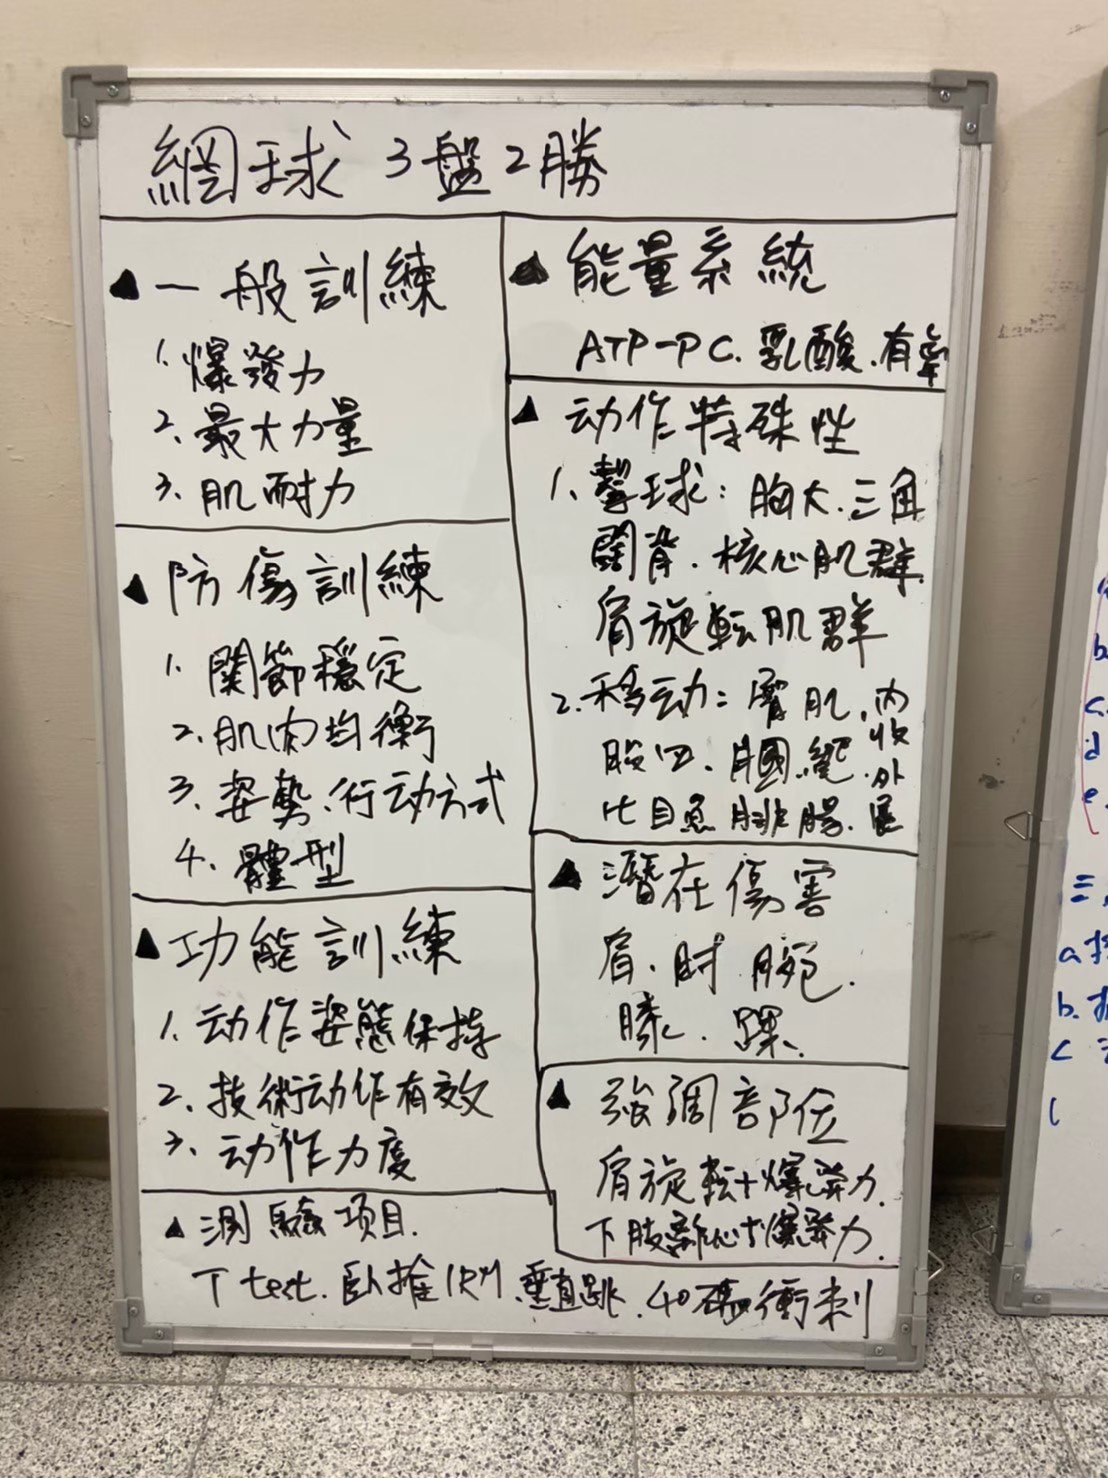 網球 3盤2勝
▲一般訓練
1. 爆發力
2. 最大力量
3. 肌耐力
▲防傷訓練
1. 關節穩定
2. 肌肉均衡
3. 姿勢、行动方式
4. 體型
▲功能訓練
1. 动作姿態保持
2. 技術动作有效
3. 动作力度
▲能量系統
ATP-PC. 乳酸. 有氧
▲动作特殊性
1. 擊球: 胸大. 三角
闊背. 核心肌群.
肩旋転肌群
2. 移动: 臀肌. 內收外展
股四. 膕繩.
比目魚 腓腸.
▲潛在傷害
肩. 肘 腕.
膝. 踝.
▲強調部位
肩旋転+爆發力.
下肢離心+爆發力.
▲測驗項目.
T test. 臥推1RM. 垂直跳. 40碼衝刺
b.
c.
d
e.
三.
a
b.
c